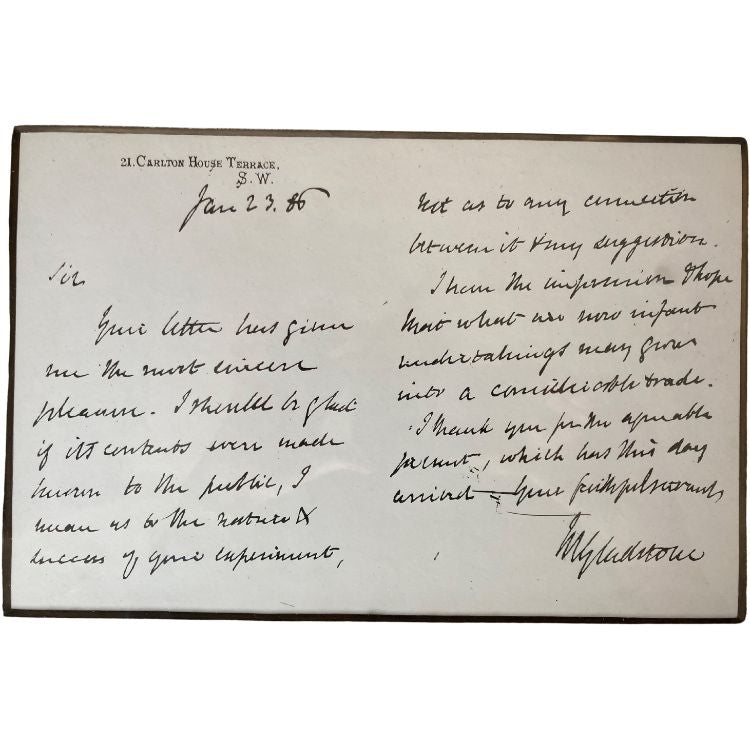 21. CARLTON HOUSE TERRACE,
S. W.
Jan 23. 86
Sir
Your letter has given
me the most sincere
pleasure. I should be glad
if its contents were made
known to the public, I
mean as to the nature &
success of your experiment,
not as to any connection
between it & my suggestion.
I have the impression & hope
that what are now infant
undertakings may grow
into a considerable trade.
I thank you for the agreeable
present, which has this day
arrived – Your faithful servant
WEGladstone